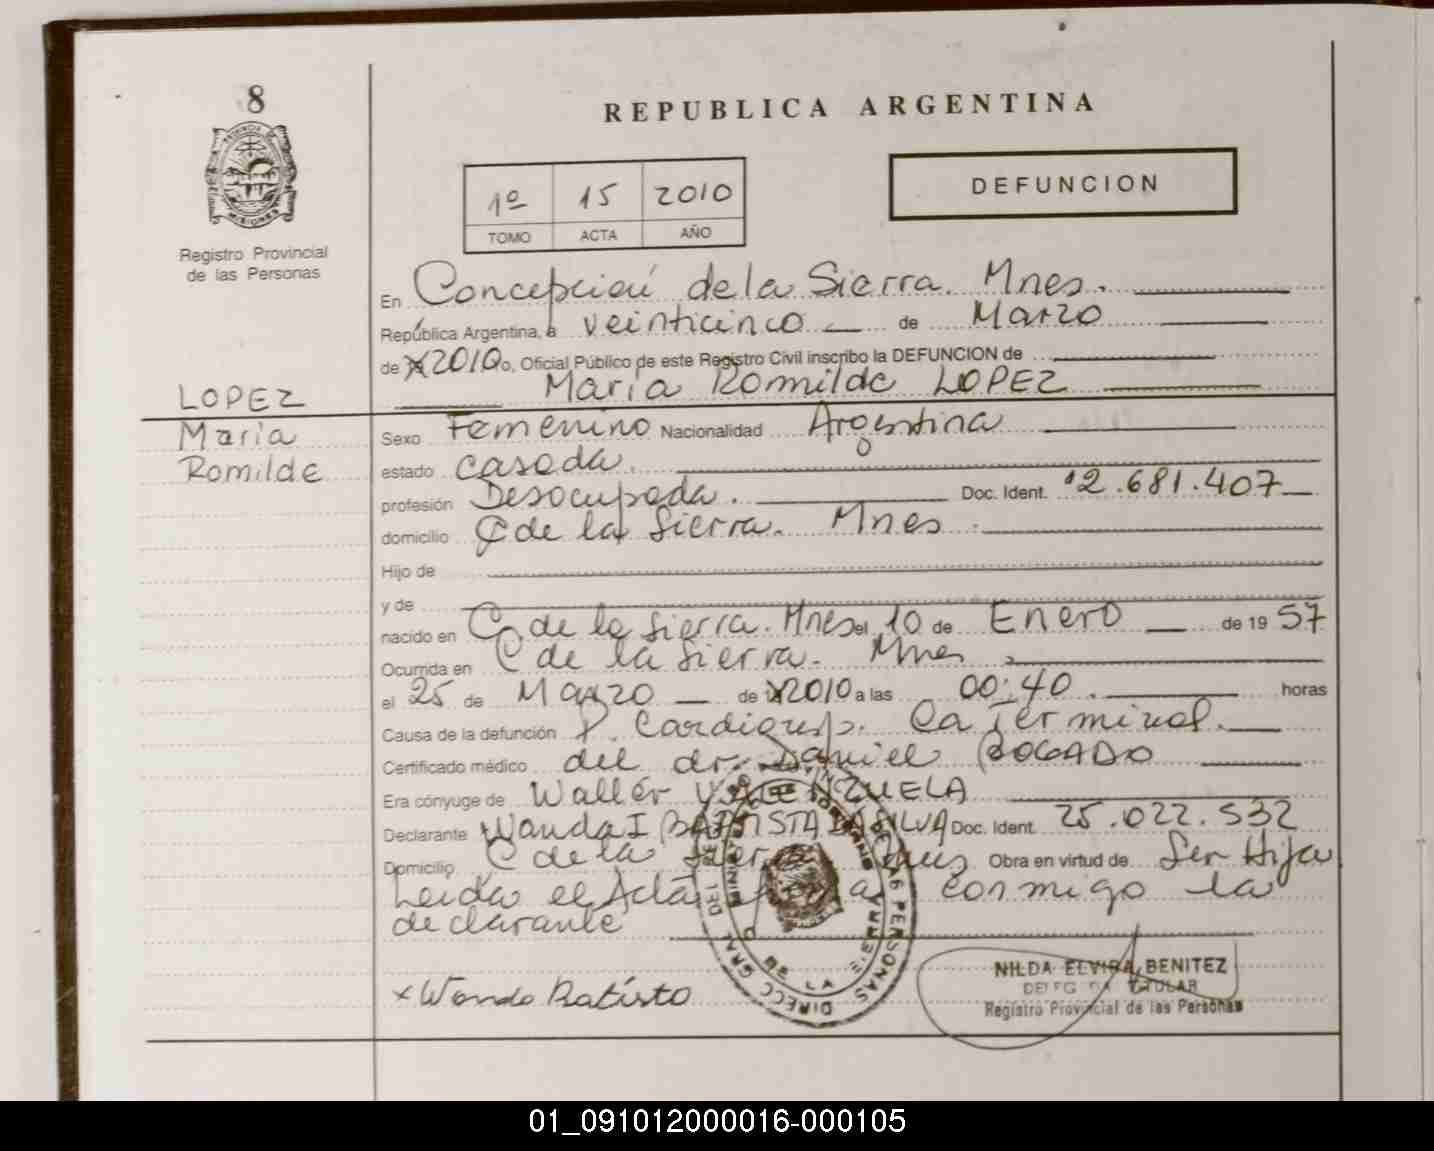 8
REPUBLICA ARGENTINA
PROVINCIA DE
MISIONES
Registro Provincial
de las Personas
1º 15 2010
TOMO ACTA AÑO
DEFUNCION
En Concepción de la Sierra. Mnes.
República Argentina, a veinticinco de Marzo
de 2010, Oficial Público de este Registro Civil inscribo la DEFUNCION de
María Romilde LOPEZ
LOPEZ
María
Romilde
Sexo Femenino Nacionalidad Argentina
estado casada.
profesión Desocupada. Doc. Ident. 12.681.407
domicilio C de la Sierra. Mnes.
Hijo de
y de
nacido en C. de la Sierra. Mnes el 10 de Enero de 19 57
Ocurrida en C de la Sierra. Mnes.
el 25 de Marzo de 2010 a las 00:40. horas
Causa de la defunción P. Cardioresp. Ca Terminal.
Certificado médico del dr. Daniel BOGADO
Era cónyuge de Walter VALENZUELA
Declarante Wanda I BATISTA DA SILVA Doc. Ident. 25.022.532
Domicilio C de la Sierra Mnes Obra en virtud de Ser Hija
Leída el Acta firma conmigo la
declarante
x Wanda Batista
NILDA ELVIRA BENITEZ
DELEGADA TITULAR
Registro Provincial de las Personas
01_091012000016-000105